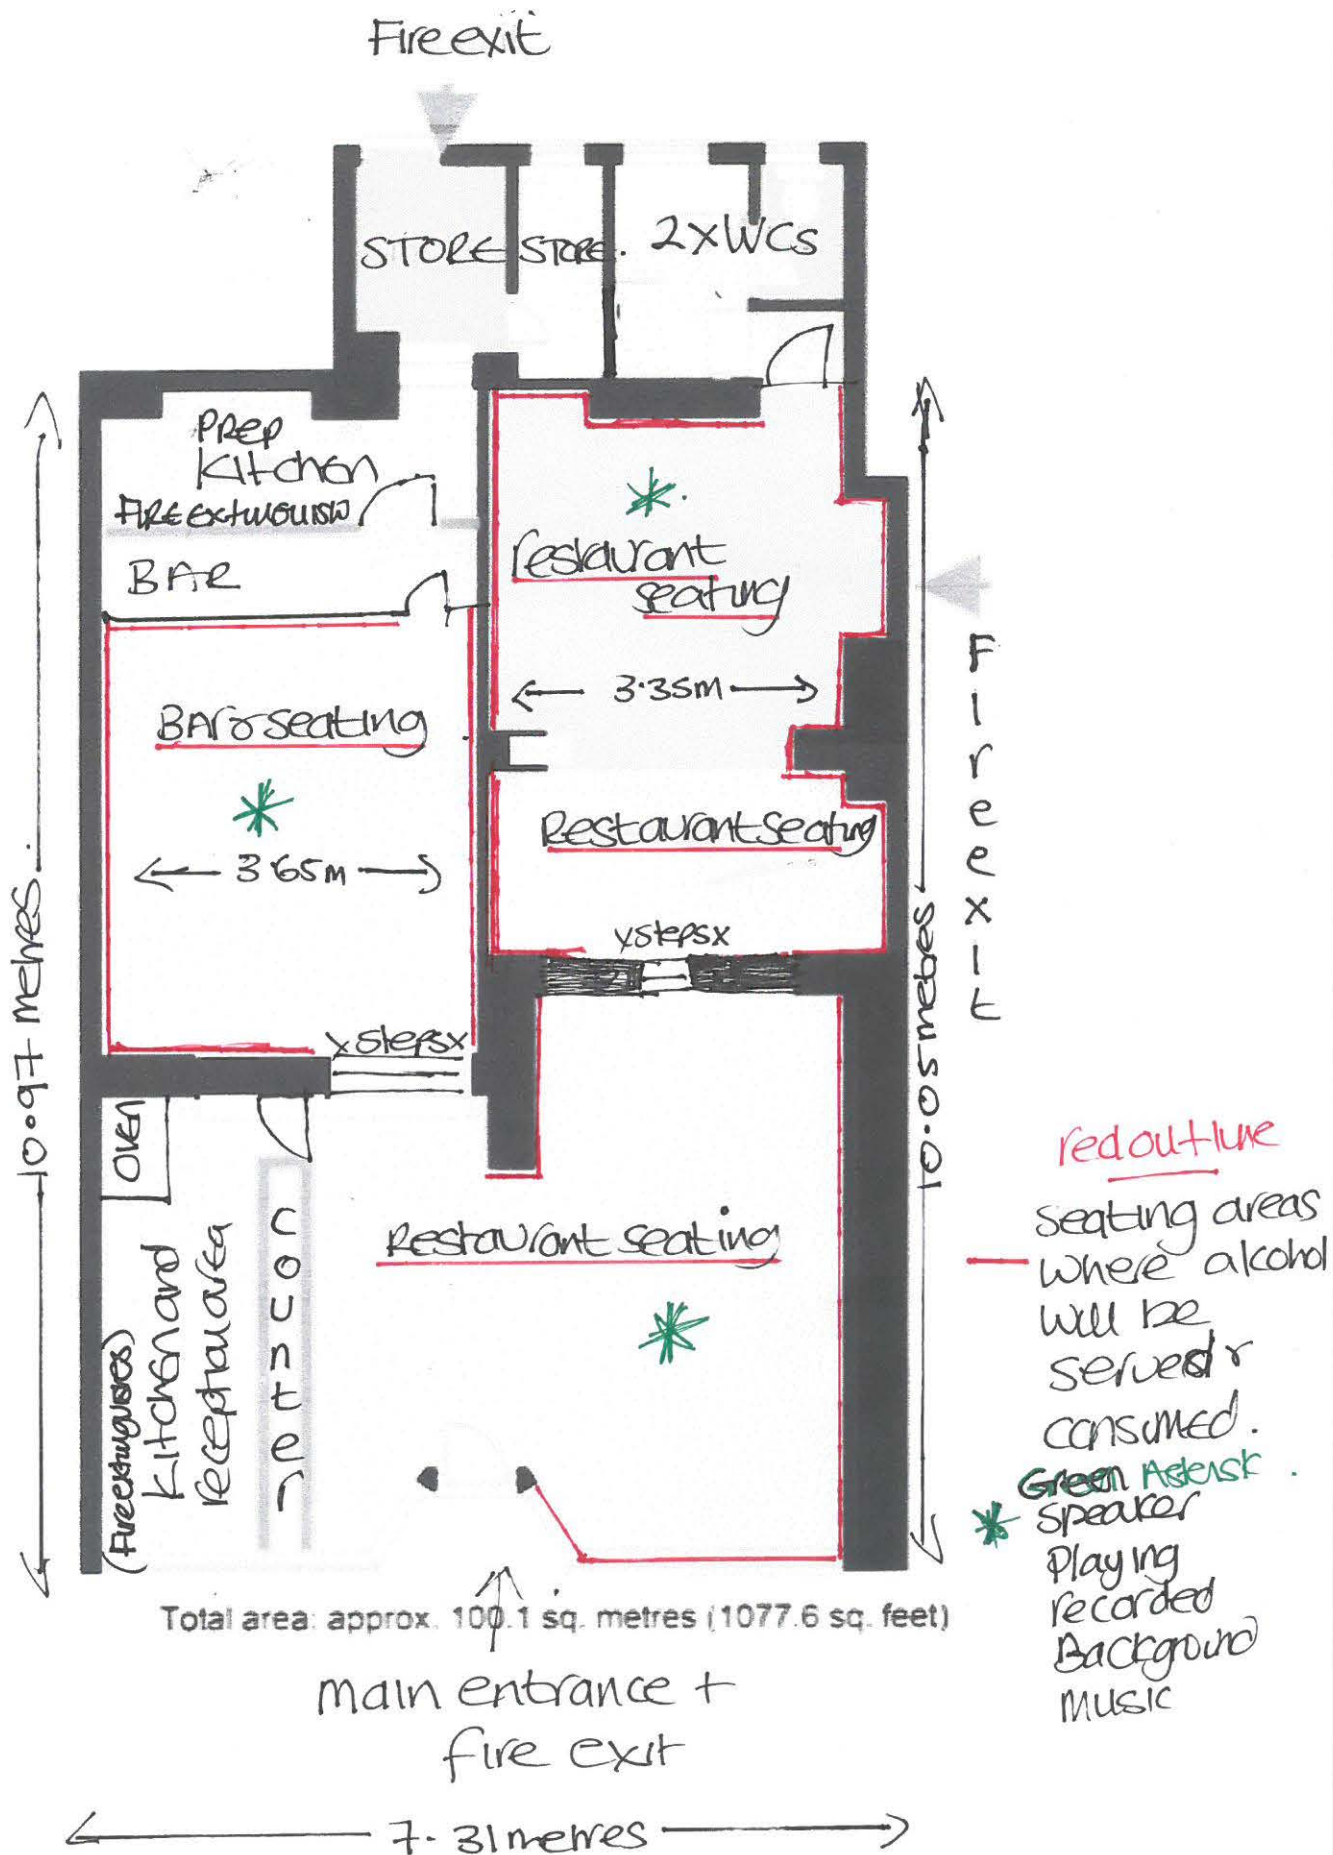 Fire exit
STORE
STORE.
2xWCs
PREP
Kitchen
FIRE EXTINGUISH
BAR
restaurant
seating
3.35m
BAR & seating
3.65m
Restaurant seating
x steps x
x steps x
Fire exit
10.97 metres.
10.05 metres
OVEN
Counter
Kitchen and
reception area
(Fire extinguishers)
Restaurant seating
red outline
Seating areas
where alcohol
will be
served &
consumed.
Green Asterisk.
Speaker
Playing
recorded
Background
music
Total area: approx. 100.1 sq. metres (1077.6 sq. feet)
main entrance +
fire exit
7.31 metres